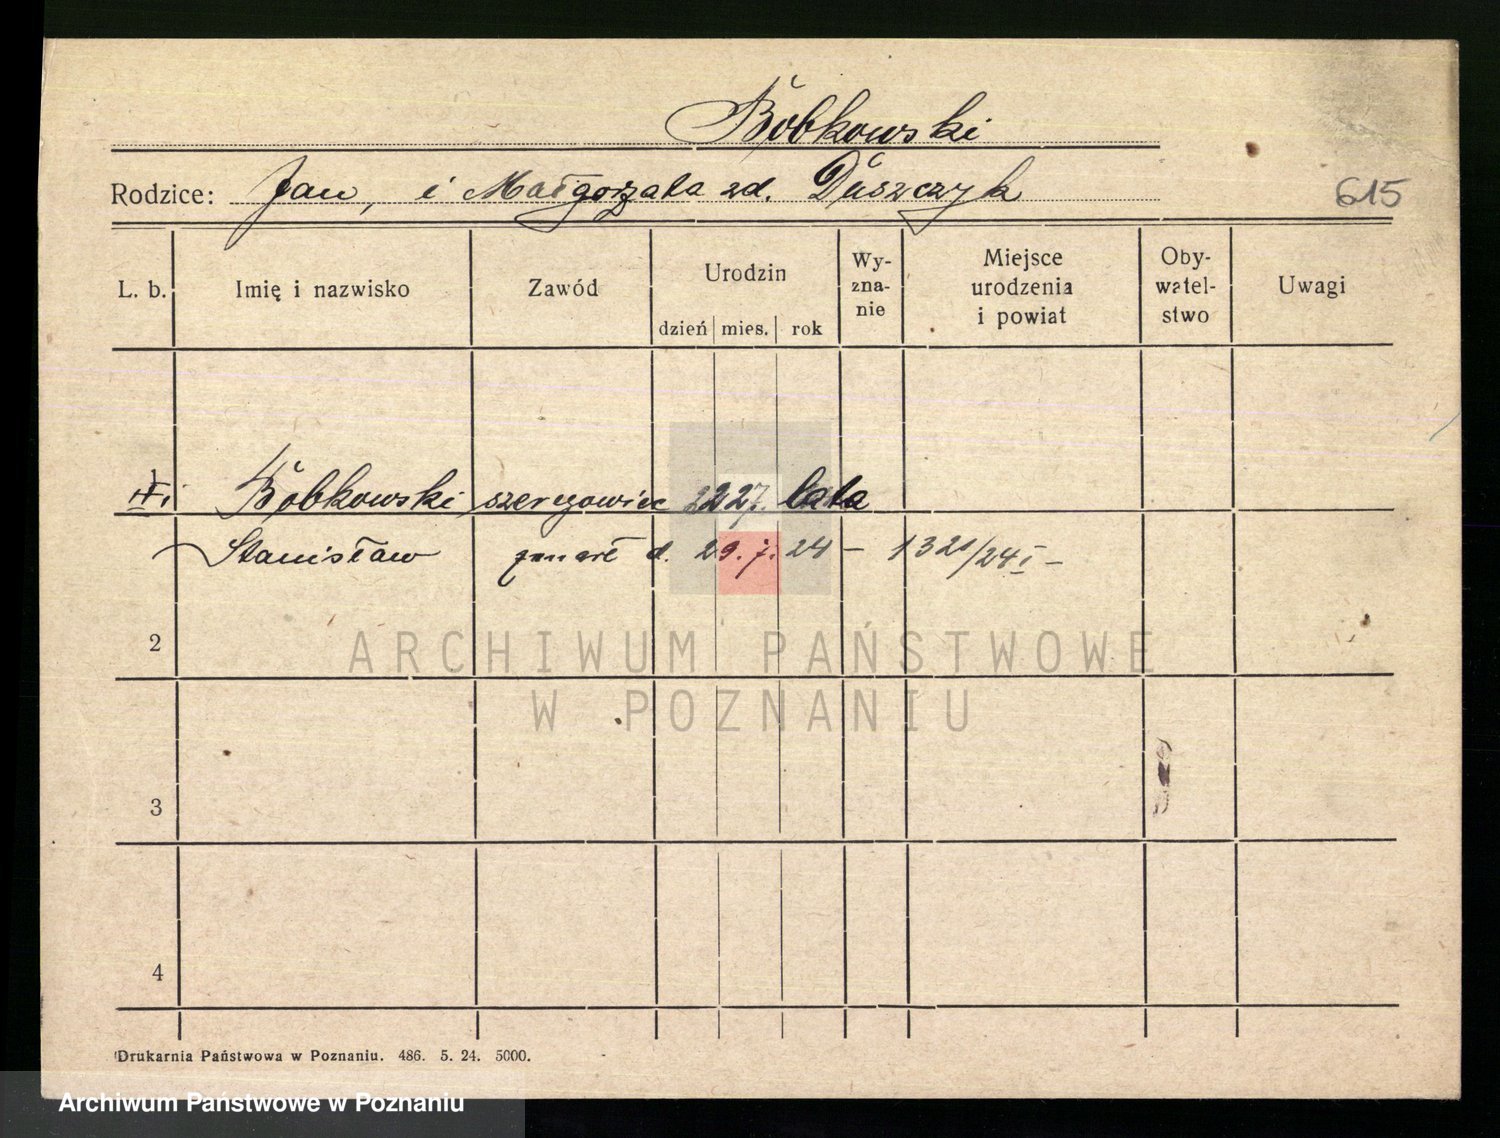 Bobkowski
Rodzice: Jan, i Małgorzata zd. Duszczyk
615
L. b.
Imię i nazwisko
Zawód
Urodzin
dzień mies. rok
Wy-
zna-
nie
Miejsce
urodzenia
i powiat
Oby-
watel-
stwo
Uwagi
1
Bobkowski szeregowiec lata
Stanisław zmarł d. 29. 7. 24 – 1321/24 I –
2
3
4
Drukarnia Państwowa w Poznaniu. 486. 5. 24. 5000.
ARCHIWUM PAŃSTWOWE
W POZNANIU
Archiwum Państwowe w Poznaniu